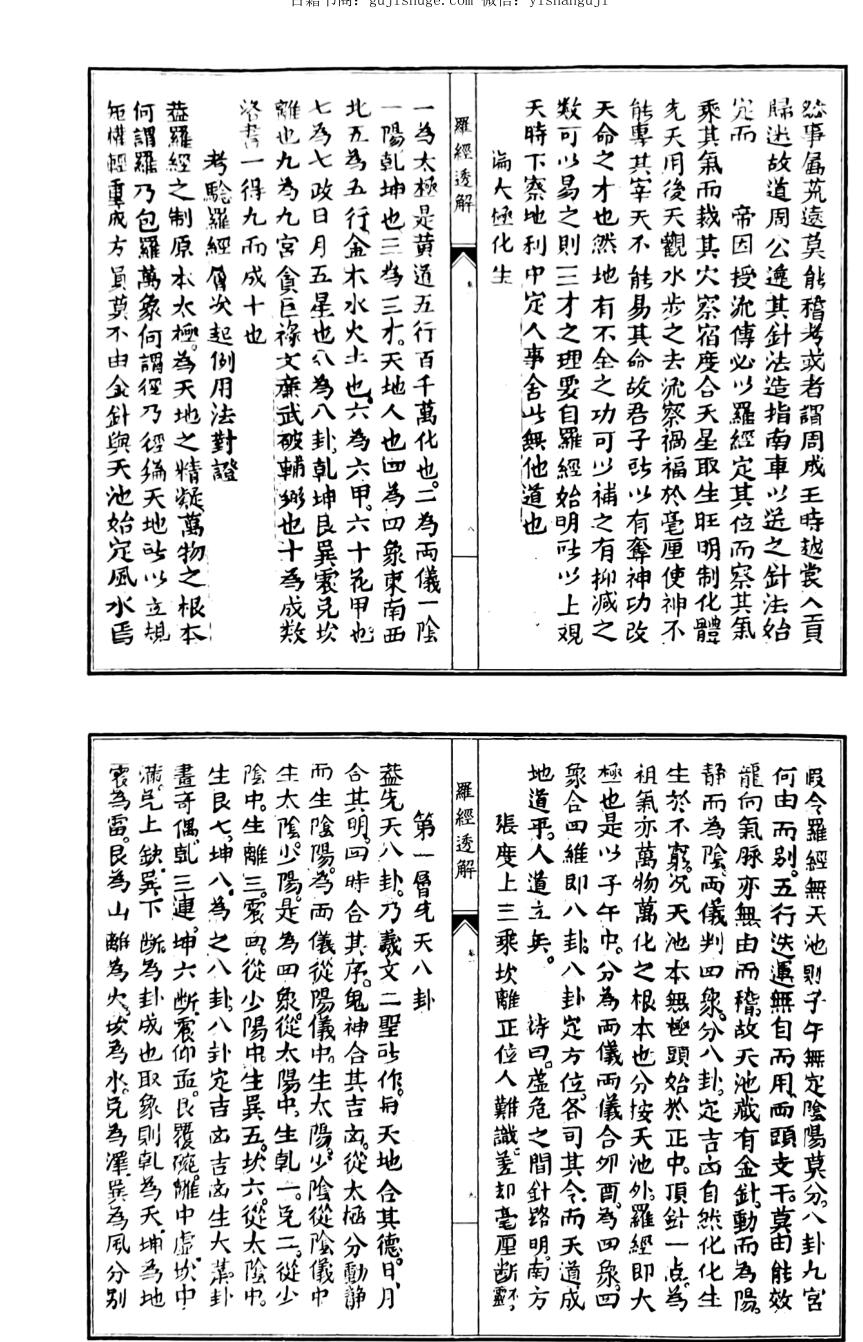 古籍书商：gujishuge.com 微信：yishanguji
然事屬荒遠莫能稽考或者謂周成王時越裳入貢
歸迷故道周公造其針法造指南車以送之針法始
定而　帝因授流傳必以羅經定其位而察其氣
乘其氣而裁其穴察宿度合天星取生旺明制化體
先天用後天觀水步之去流察禍福於毫厘使神不
能專其宰天不能易其命故君子所以有奪神功改
天命之才也然地有不全之功可以補之有抑減之
数可以易之則三才之理要自羅經始明所以上观
天時下察地利中定人事舍此無他道也
論大極化生
羅經透解
一為太極是黄道五行百千萬化也。二為兩儀一陰
一陽乾坤也三為三才。天地人也四為四象東南西
北五為五行金木水火土也。六為六甲。六十花甲也
七為七政日月五星也八為八卦。乾坤艮巽震兑坎
離也九為九宫貪巨禄文廉武破輔弼也十為成数
洛書一得九而成十也
考驗羅經層次起例用法對證
蓋羅經之制原本太極。為天地之精凝萬物之根本
何謂羅乃包羅萬象何謂經乃經綸天地所以立規
矩權輕重成方員莫不由金針與天池始定風水焉
假令羅經無天池則子午無定陰陽莫分。八卦九宮
何由而别。五行迭運無自而用。而頭支干。莫由能效
龍向氣脉亦無由而稽。故天池藏有金針。動而為陽。
静而為陰。兩儀判四象。分八卦。定吉凶自然化化生
生於不窮。况天池本無極頭始於正中。頂針一点。為
祖氣亦萬物萬化之根本也分按天池外。羅經即大
極也是以子午中。分為兩儀兩儀合卯酉。為四象。四
象合四維即八卦。八卦定方位。各司其令。而天道成
地道平。人道立矣。　詩曰。虚危之間針路明。南方
張度上三乘坎離正位人難識。差却毫厘断不靈。
羅經透解
第一層先天八卦
蓋先天八卦。乃羲文二聖所作。與天地合其德。日月
合其明。四時合其序。鬼神合其吉凶。從太極分動静
而生陰陽。為兩儀從陽儀中。生太陽。少陰從陰儀中
生太陰。少陽。是為四象。從太陽中。生乾一。兑二。從少
陰中。生離三。震四。從少陽中。生巽五。坎六。從太陰中。
生艮七。坤八。為之八卦。八卦定吉凶吉凶生大業。卦
畫奇偶。乾三連。坤六断。震仰盂。艮覆碗。離中虚。坎中
滿。兑上缺。巽下断。為卦成也取象則乾為天。坤為地
震為雷。艮為山離為火。坎為水。兑為澤。巽為風分别